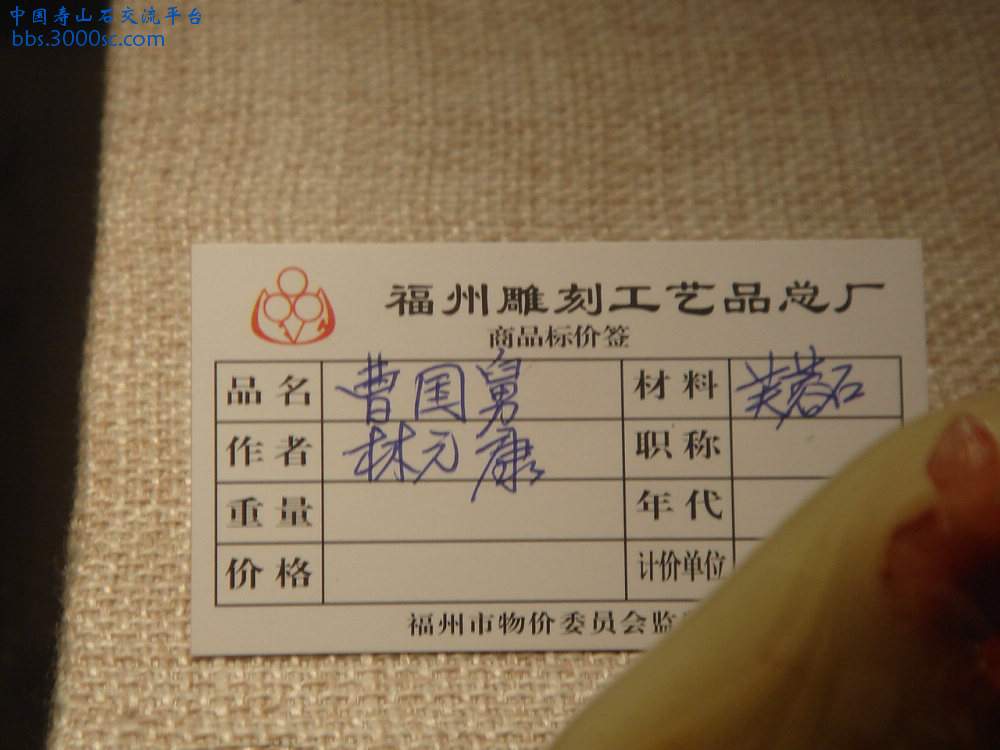 中国寿山石交流平台
bbs.3000sc.com
福州雕刻工艺品总厂
商品标价签
品名 曹国舅 材料 芙蓉石
作者 林元康 职称
重量 年代
价格 计价单位
福州市物价委员会监